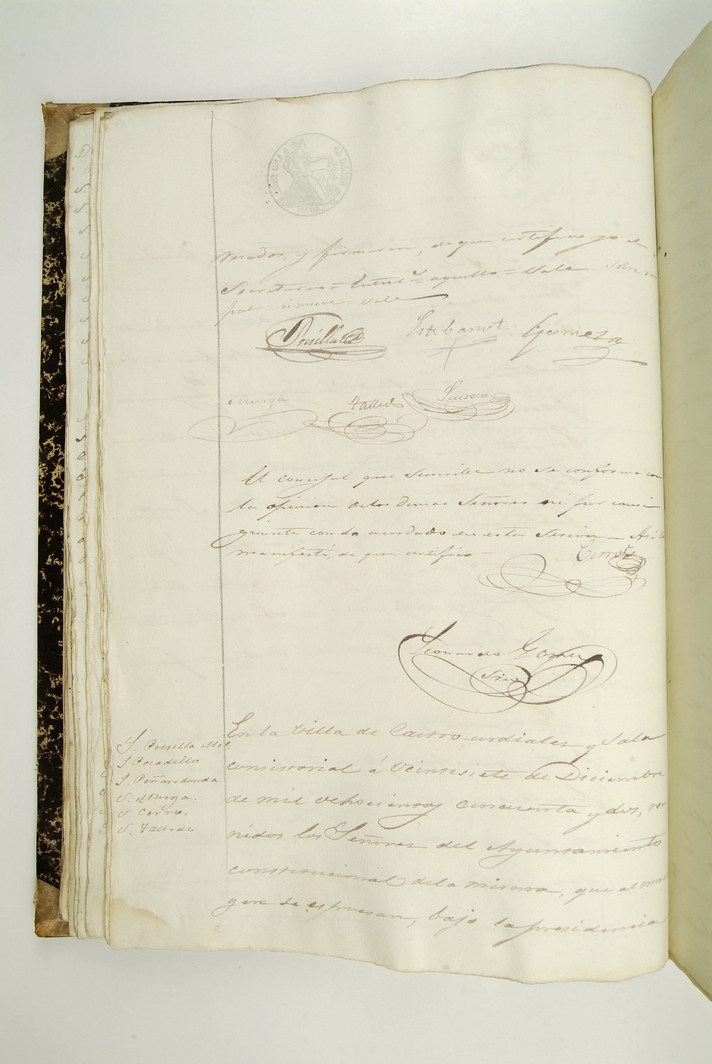 mados, y firmaron, de que certifico yo el
Secretario = Entre rs aquello = Vale
Vale
Presilla
Gomez
Murga
Talledo
El concejal que suscribe no se conforma con
la opinion de los demas Señores ni por consi
guiente con lo acordado en esta Sesion — Asi lo
manifestó, de que certifico —
Cerro
Leonardo Gomez
Srio
S. Presilla Alc.e
S. Posadillo
S. Peñaredonda
S. Murga.
S. Cerro.
S. Talledo
En la Villa de Castro urdiales y Sala
consistorial á Veintisiete de Diciembre
de mil ochocientos cincuenta y dos, reu
nidos los Señores del Ayuntamiento
constitucional de la misma, que al mar
gen se espresan, bajo la presidencia